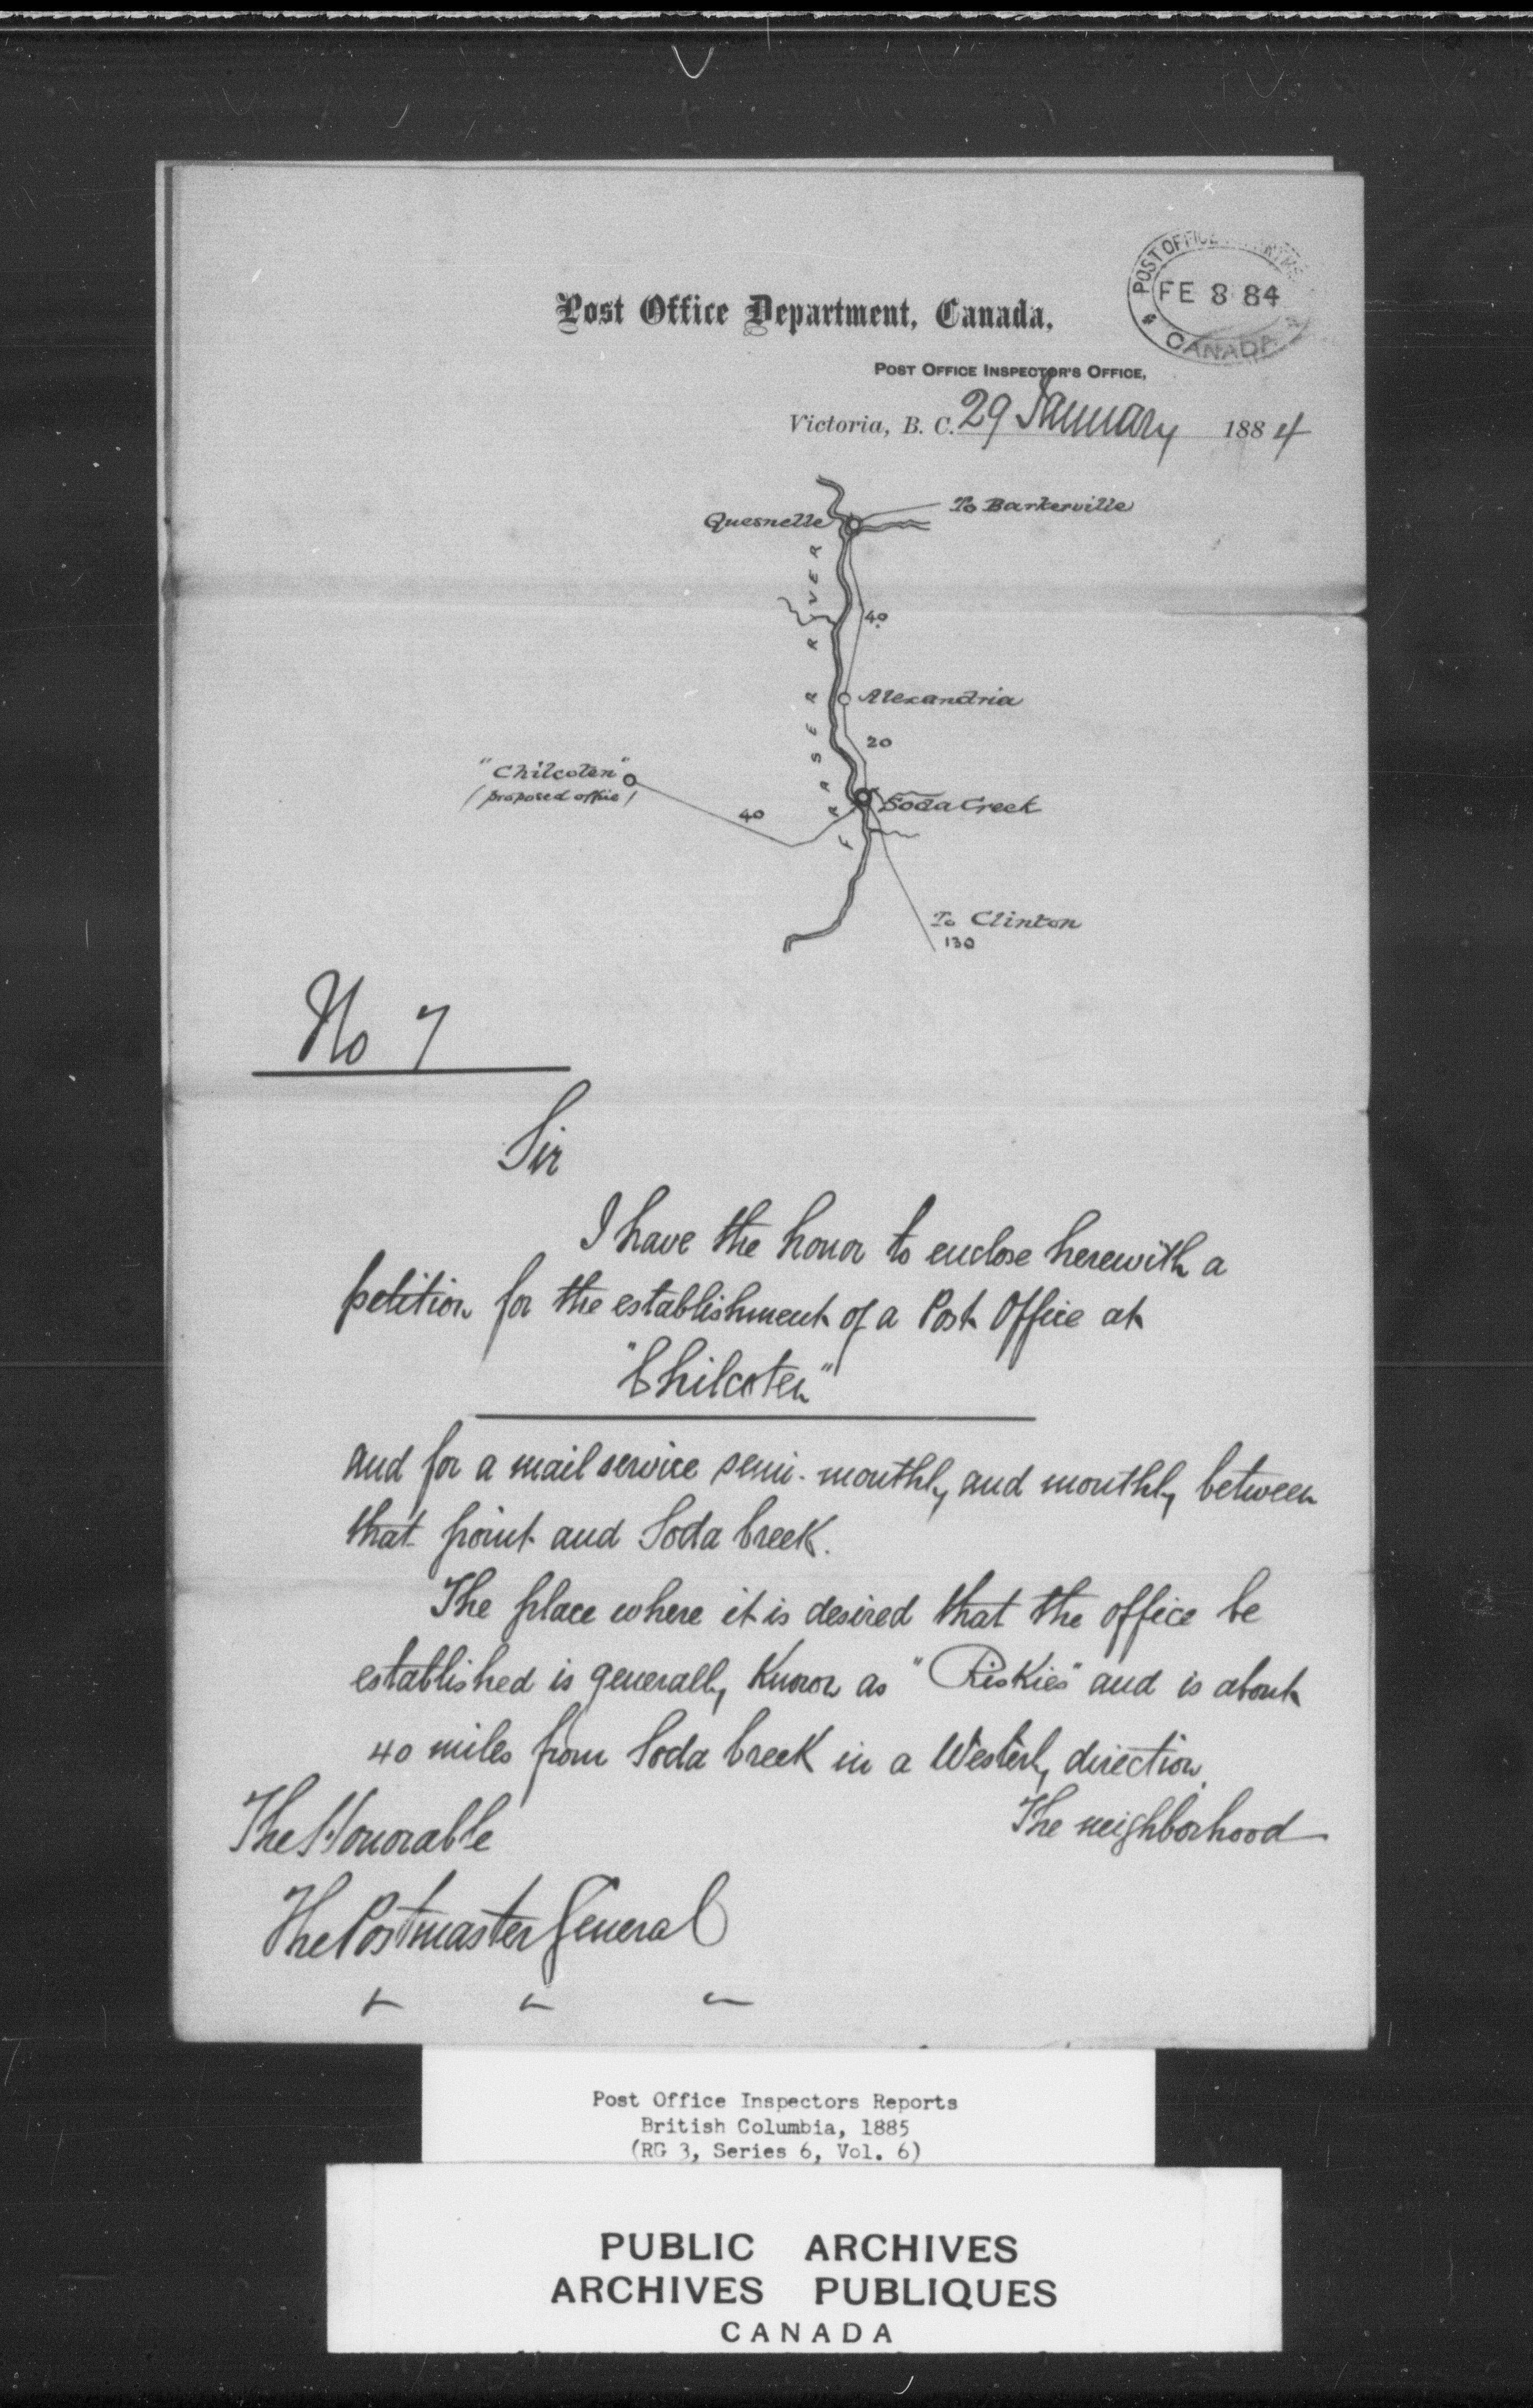 POST OFFICE
FE 8 84
CANADA
Post Office Department, Canada,
POST OFFICE INSPECTOR'S OFFICE,
Victoria, B. C. 29 January 1884
Quesnelle
To Barkerville
FRASER RIVER
40
Alexandria
20
"Chilcoten"
(proposed office)
40
Soda Creek
To Clinton
130
No 7
Sir
I have the honor to enclose herewith a
petition for the establishment of a Post Office at
"Chilcoten"
and for a mail service semi-monthly and monthly between
that point and Soda Creek.
The place where it is desired that the office be
established is generally known as "Riskies" and is about
40 miles from Soda Creek in a Westerly direction.
The neighborhood
The Honorable
The Postmaster General
Post Office Inspectors Reports
British Columbia, 1885
(RG 3, Series 6, Vol. 6)
PUBLIC ARCHIVES
ARCHIVES PUBLIQUES
CANADA